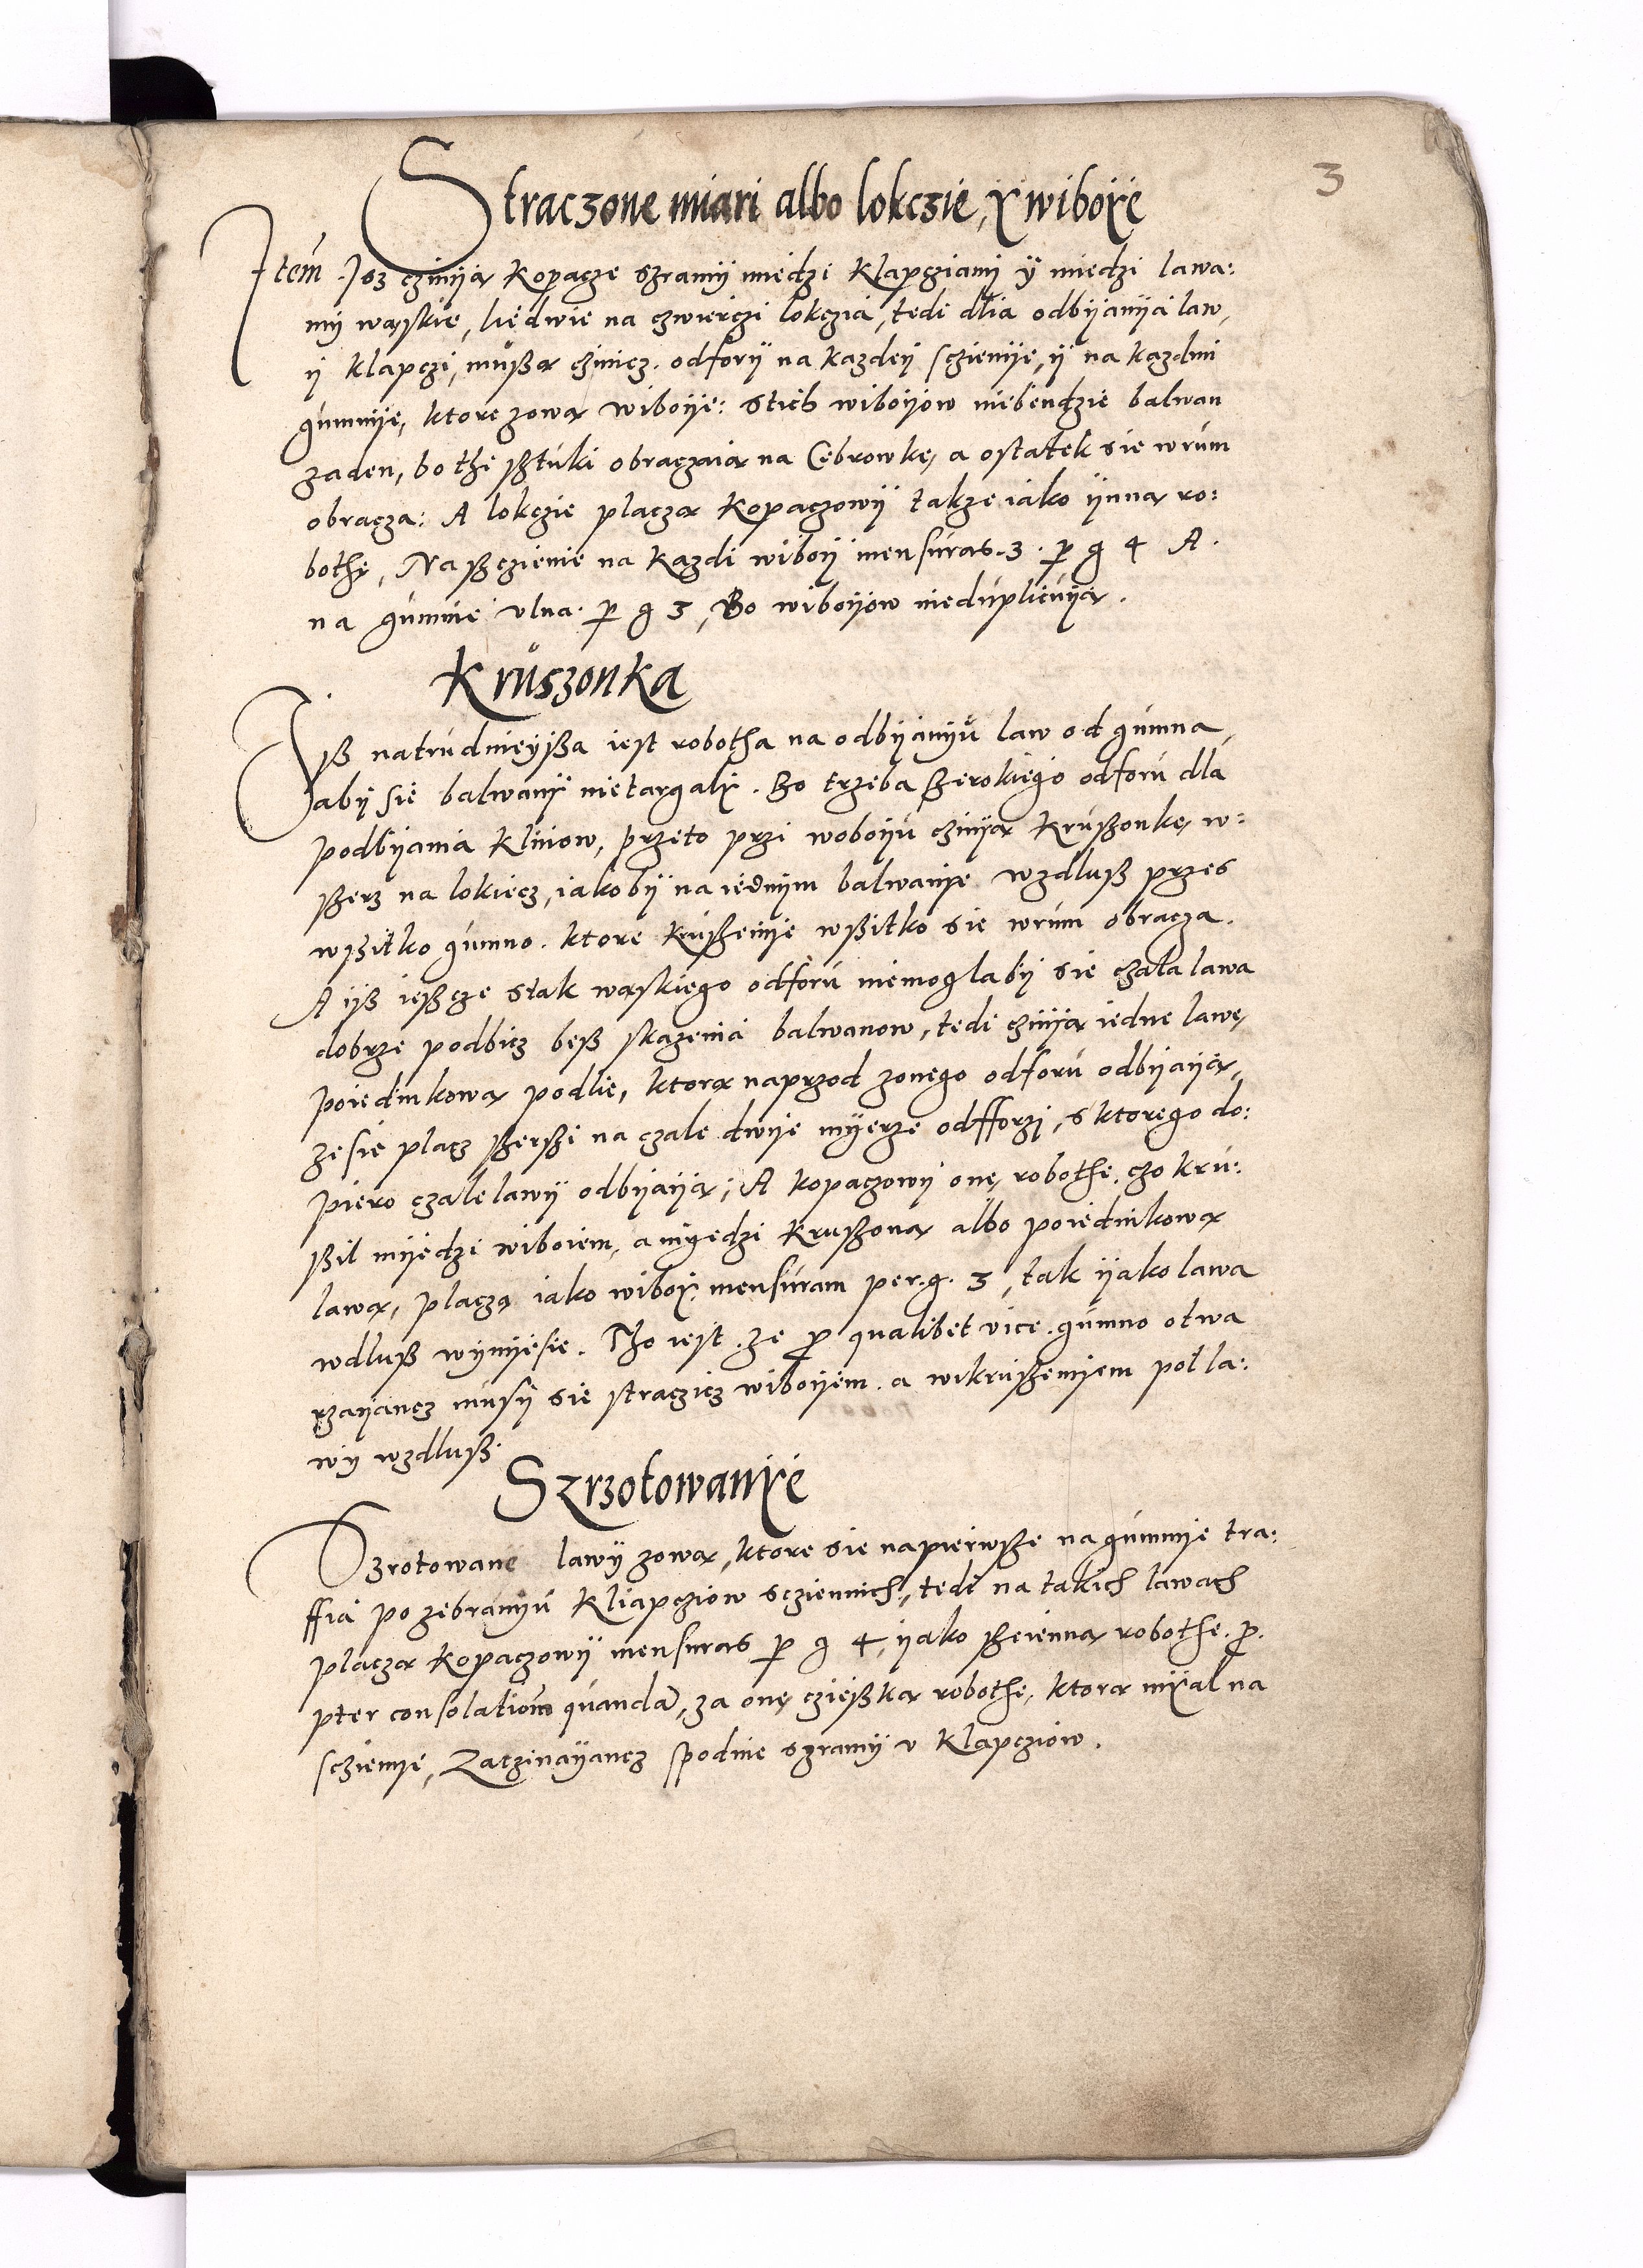 3
Straczone miari albo lokczie, y wiboye
Item Isz czinija Kopacze szramÿ miedzi Klapcziami ÿ miedzi lawa:
mÿ wąskie, liedwie na czwierczi lokczia, tedi dlia odbijanija law,
ÿ klapczi, mußą czinicz. odforÿ na kazdeÿ sczienije, ÿ na kazdmi
gumnije, ktore zową wiboije: stich wiboijow niebendzie balwan
zaden, bo thi sztuki obraczaią na Cebrowkę, a ostatek sie wrum
obracza: A lokczie placzą Kopaczowÿ takze iako ÿnną ro:
bothę, Na ßczienie na kazdi wiboÿ mensuras. 3. p g 4 A.
na gumnie vlna. p g 3, Bo wiboijow nieduplicuÿą.
Kruszonka
Iß natrudnieÿßa iest robotha na odbijanÿu law od gumna,
abÿ sie balwanÿ nietargalÿ. Bo trzeba ßerokiego odforu dla
podbijania Kliniow, przeto przi woboÿu czinÿą Krußonkę w:
ßerz na lokiecz, iakobÿ na iednÿm balwanÿe wzdluß przes
wßitko gumno. ktore Krußenÿe wßitko sie wrum obracza.
A ÿß ießcze stak wąskiego odforu niemoglabÿ sie czala lawa
dobrze podbicz beß skazenia balwanow, tedi czinÿą iedne lawę
poiedinkową podlie, ktorą naprzod zonego odforu odbijaÿą,
ze sie placz ßerßi na czale dwÿe mÿerze odfforzÿ, s ktorego do:
piero czale lawÿ odbijaÿą; A kopaczowÿ onę robothe, czo kru:
ßil mÿedzi wiboiem, a mÿedzi Krußoną albo poiedinkową
lawą, placzą iako wiboÿ mensuram per. g. 3, tak ÿako lawa
wdluß wÿnÿesie. Tho iest. ze p qualibet vice. gumno otwa
rzaÿancz musÿ sie straczicz wiboÿem. a wikrußenÿem pol la:
wÿ wzdluß.
Szrzotowanÿe
Szrotowane lawÿ zową, ktore sie napierwße na gumnÿe tra:
ffia po zebranÿu Kliapcziow scziennich, tedi na takich lawach
placzą Kopaczowÿ mensuras p g 4, ÿako sczienną robothe. p.
pter consolationem quandã, za onę czießką robothe, ktorą mÿal na
sczienÿe, Zaczinaÿancz spodnie szramÿ v Klapcziow.